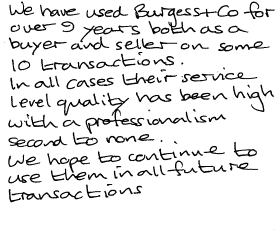 We have used Burgess+Co for
over 9 years both as a
buyer and seller on some
10 transactions.
In all cases their service
level quality has been high
with a professionalism
second to none.
We hope to continue to
use them in all future
transactions